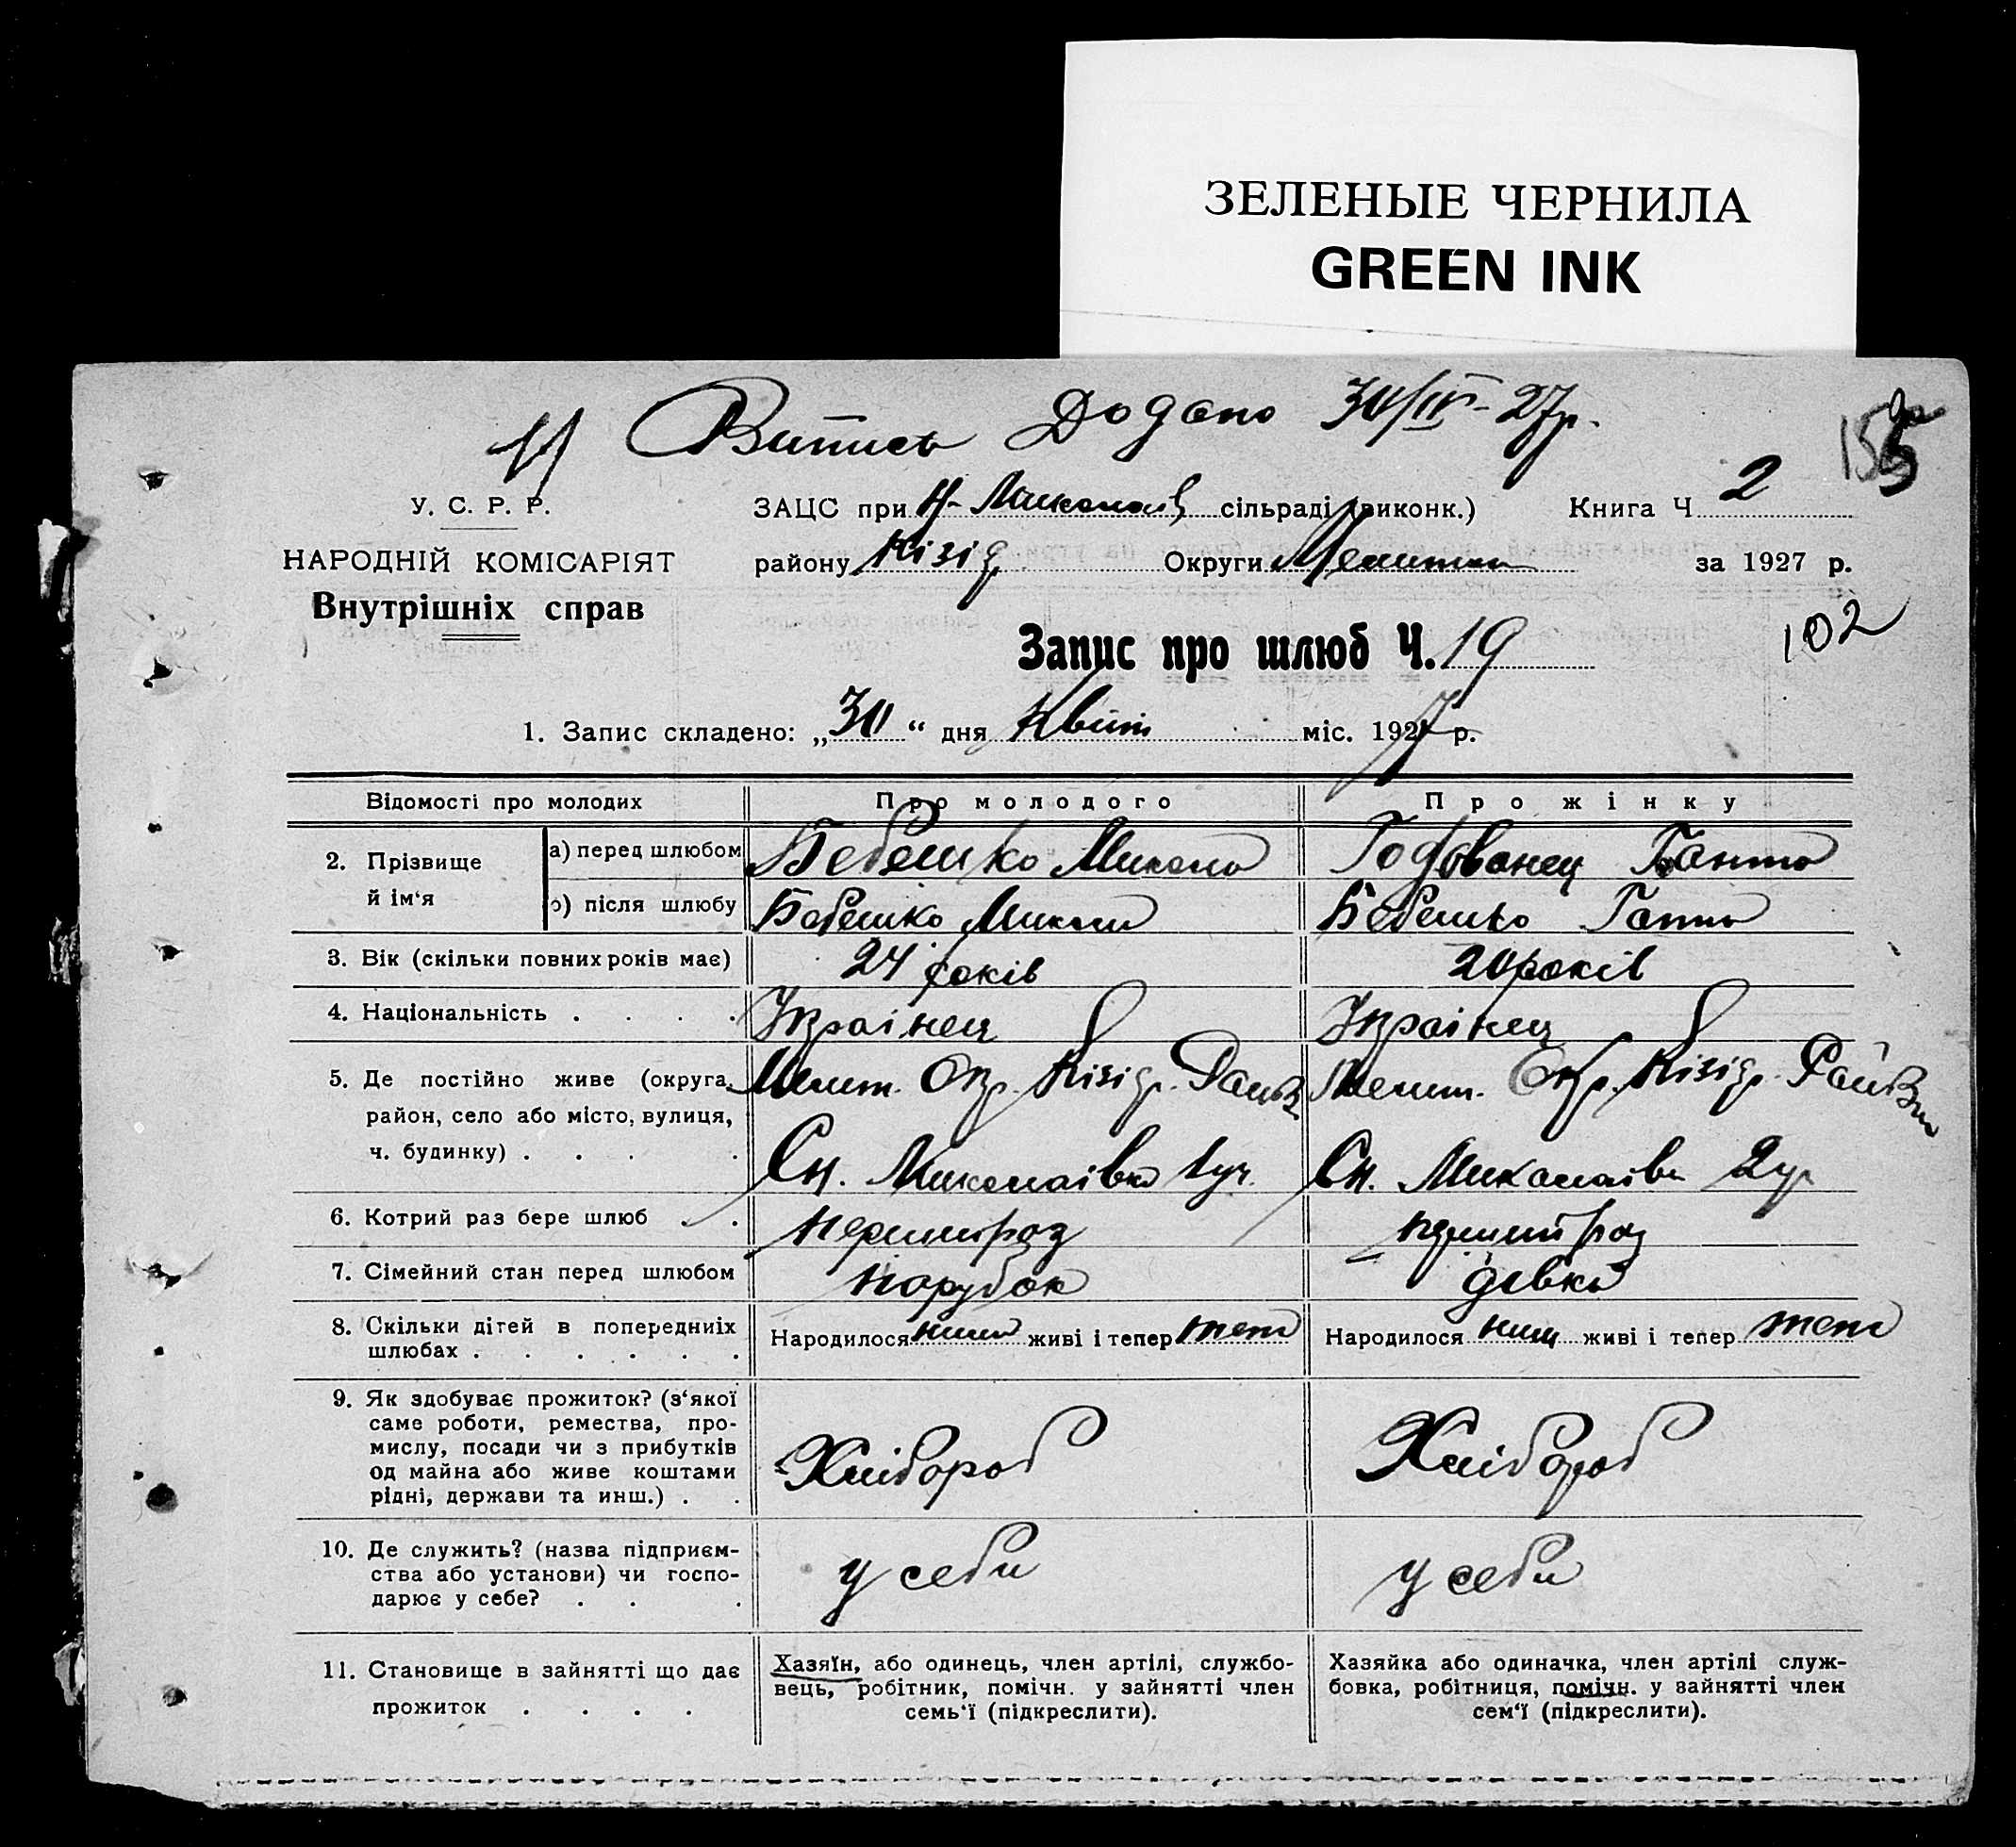 ЗЕЛЕНЫЕ ЧЕРНИЛА
GREEN INK
Витись Додано 30/IV-27р.
У. С. Р. Р. ЗАЦС при Н-Миколаів сільраді (виконк.) Книга Ч 2
НАРОДНІЙ КОМІСАРІЯТ району Кізід Округи Мелитоп за 1927 р.
Внутрішніх справ
102
Запис про шлюб Ч. 19
1. Запис складено: „30“ дня Квіт міс. 1927 р.
Відомості про молодих Про молодого Про жінку
2. Прізвище й ім‘я
а) перед шлюбом Бебешко Микола Годованец Ганна
б) після шлюбу Бебешко Микола Бебешко Ганна
3. Вік (скільки повних років має) 24 років 20 років
4. Національність . . . . Украінец Украінец
5. Де постійно живе (округа, Мелит. Окр. Кізід. Мелит. Окр. Кізід.
район, село або місто, вулиця,
ч. будинку) . . . . Сн. Миколаівка 1 уч. Сн. Миколаівка 2 уч
6. Котрий раз бере шлюб . . перший раз перший раз
7. Сімейний стан перед шлюбом парубок дівка
8. Скільки дітей в попередниіх Народилося живі і тепер Народилося живі і тепер
шлюбах . . . . . .
9. Як здобуває прожиток? (з‘якої
саме роботи, ремества, про-
мислу, посади чи з прибутків
од майна або живе коштами
рідні, держави та инш.) . . Хлібороб Хлібороб
10. Де служить? (назва підприєм-
ства або установи) чи госпо-
дарює у себе? . . . у себи у себи
11. Становище в зайнятті що дає
прожиток . . . .
Хазяїн, або одинець, член артілі, службо-
вець, робітник, помічн. у зайнятті член
семь‘ї (підкреслити).
Хазяйка або одиначка, член артілі служ-
бовка, робітниця, помічн. у зайнятті член
сем‘ї (підкреслити).